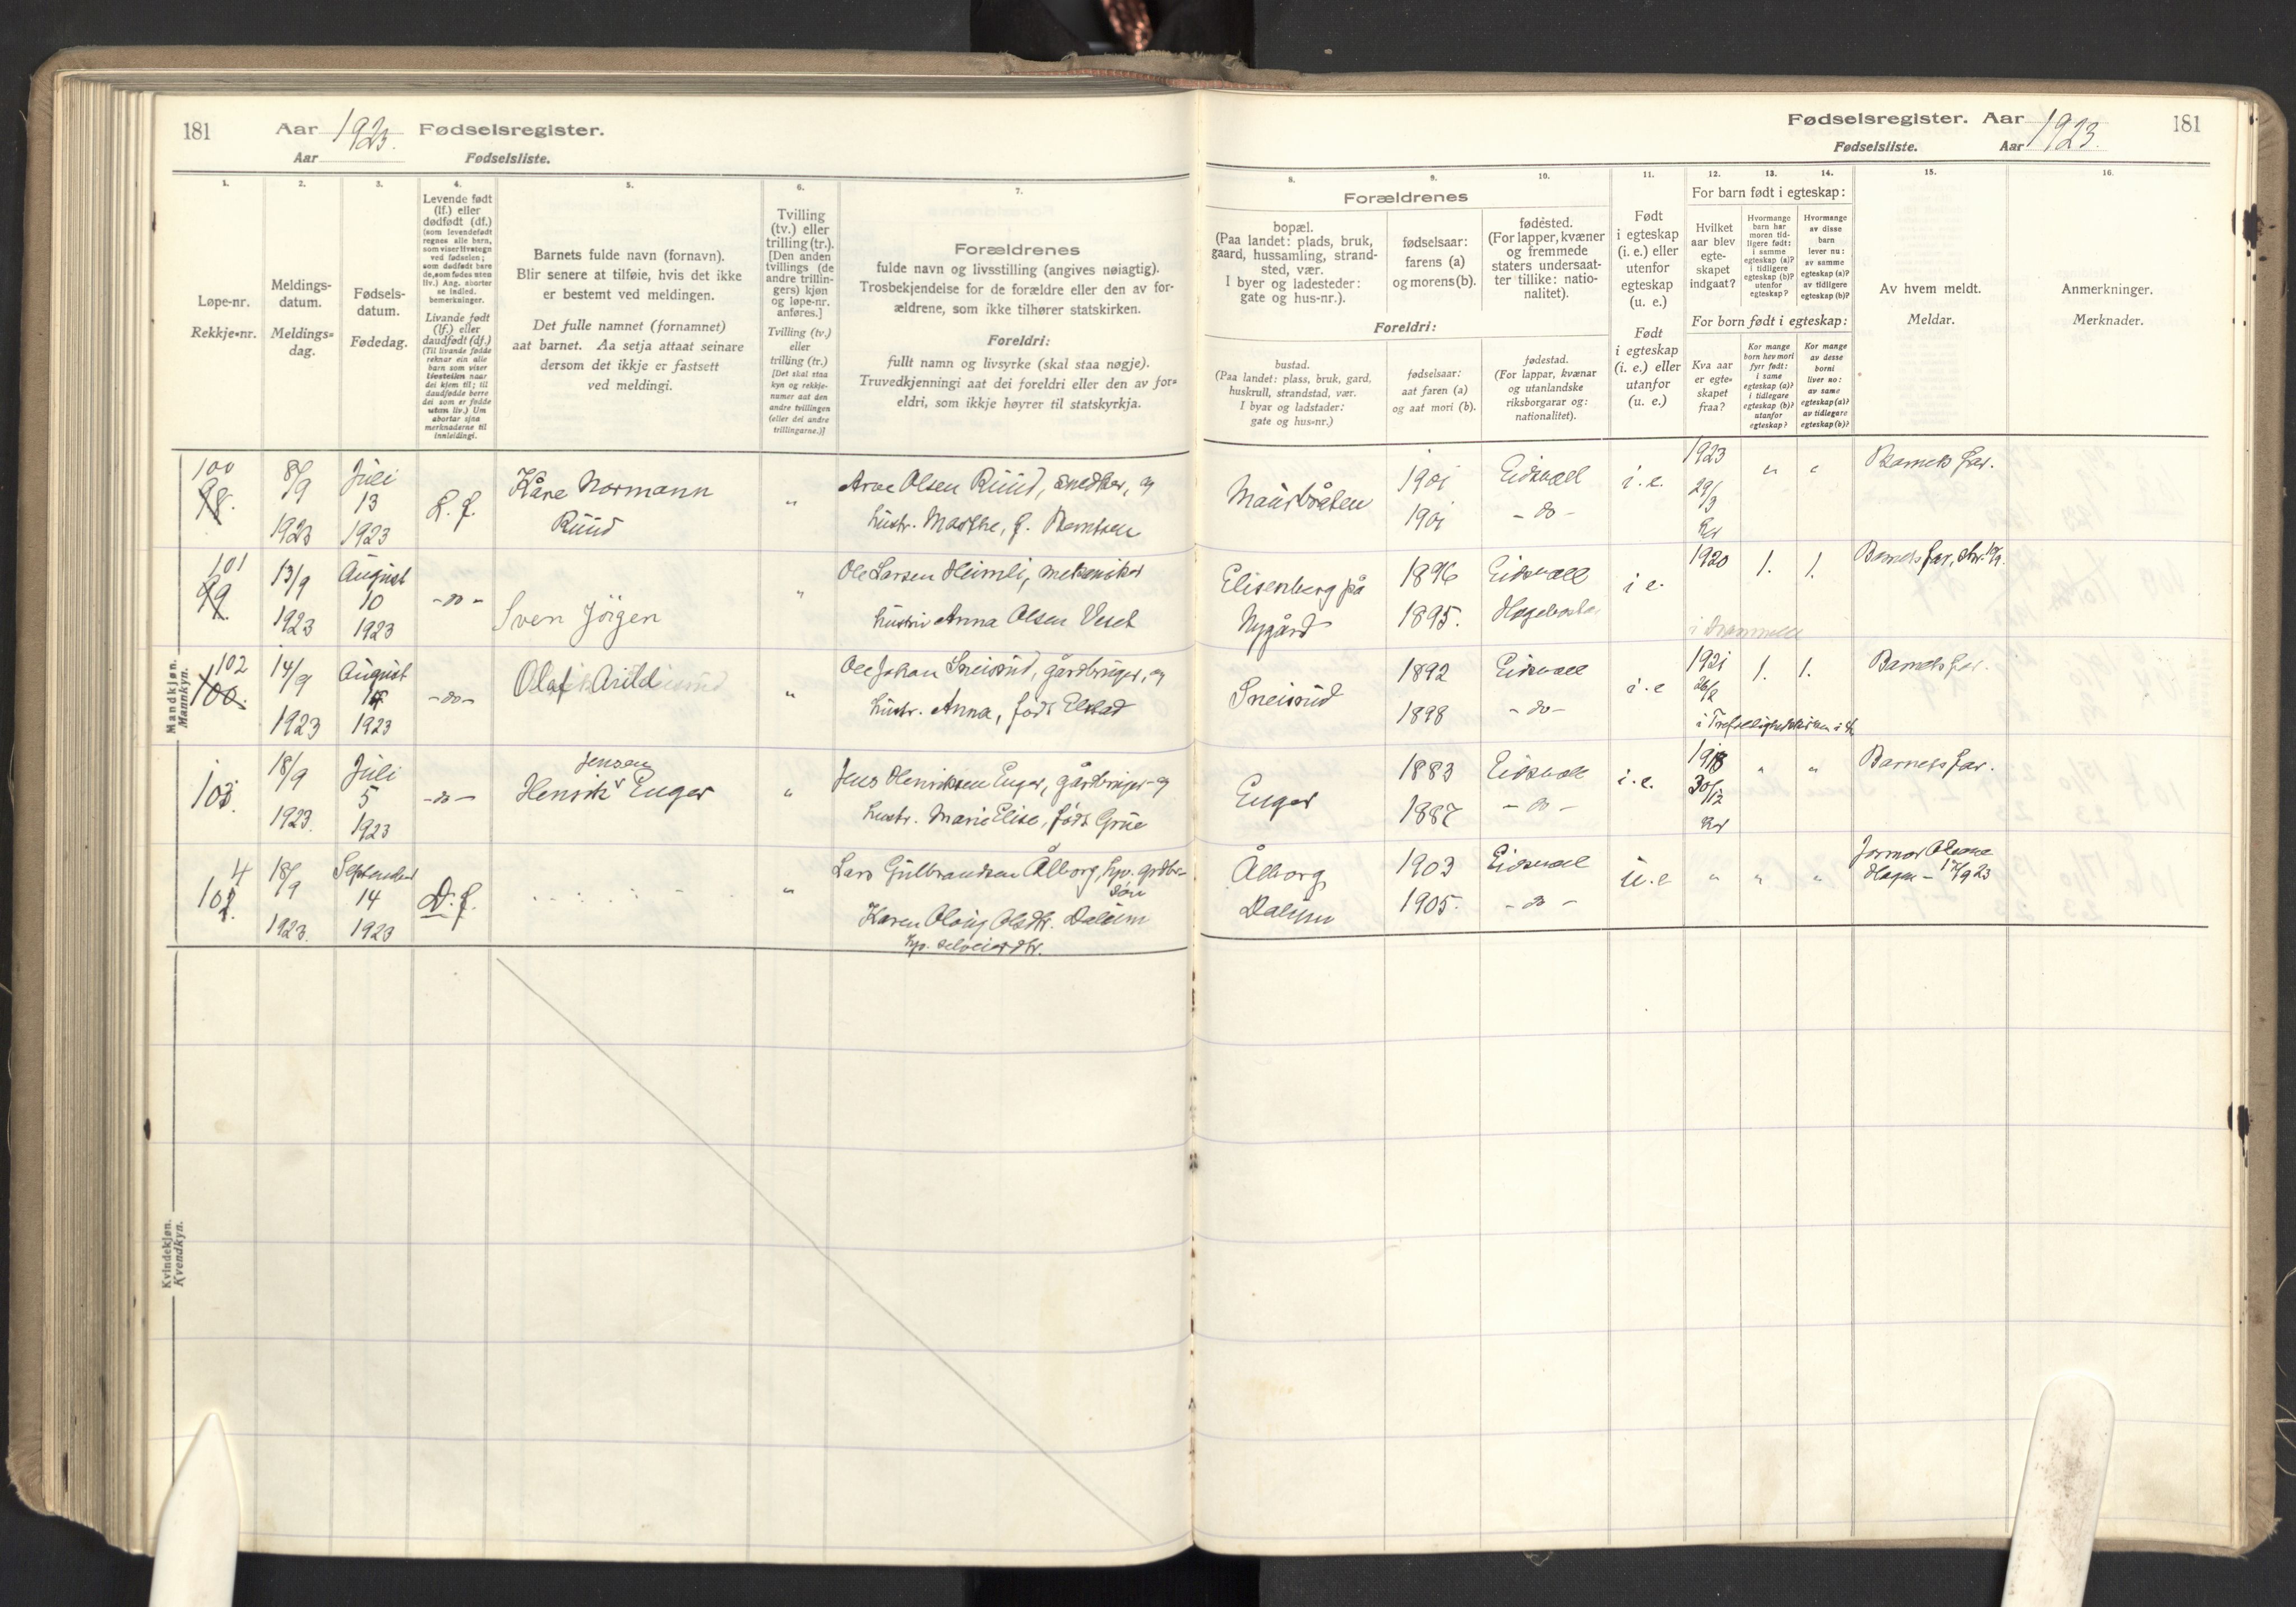 181 Aar 1923. Fødselsregister.
Aar Fødselsliste.
1. 2. 3. 4. 5. 6. 7.
Løpe-nr.
Rekkje-nr.
Meldings-
datum.
Meldings-
dag.
Fødsels-
datum.
Fødedag.
Levende født
(lf.) eller
dødfødt (df.)
(som levendefødt
regnes alle barn,
som viser livstegn
ved fødselen;
som dødfødt bare
de, som fødes uten
liv.) Ang. aborter
se indled.
bemerkninger.
Livande født
(lf.) eller
daudfødt (df.)
(Til livande fødde
reknar ein alle
barn som viser
livsteikn naar
dei kjem til; til
daudfødde berre
dei som er fødde
utan liv.) Um
abortar sjaa
merknaderne til
innleidingi.
Barnets fulde navn (fornavn).
Blir senere at tilføie, hvis det ikke
er bestemt ved meldingen.
Det fulle namnet (fornamnet)
aat barnet. Aa setja attaat seinare
dersom det ikkje er fastsett
ved meldingi.
Tvilling
(tv.) eller
trilling (tr.).
[Den anden
tvillings (de
andre trillin-
gers) kjøn
og løpe-nr.
anføres.]
Tvilling (tv.)
eller
trilling (tr.)
[Det skal staa
kyn og rekkje-
numer aat den
andre tvillingen
(eller dei andre
trillingarne.)]
Forældrenes
fulde navn og livsstilling (angives nøiagtig).
Trosbekjendelse for de forældre eller den av for-
ældrene, som ikke tilhører statskirken.
Foreldri:
fullt namn og livsyrke (skal staa nøgje).
Truvedkjenningi aat dei foreldri eller den av for-
eldri, som ikkje høyrer til statskyrkja.
Mandkjøn.
Mannkyn.
100
98.
8/9
1923
Juli
13
1923
L. f.
Kåre Normann
Ruud
"
Arne Olsen Ruud, snedker, og
hustr. Marthe, f. Berntsen
101
99.
13/9
1923
August
10
1923
-do-
Sven Jörgen
"
Ole Larsen Heimli, mekaniker
hustru Anna Olsen Veset
102
100.
14/9
1923
August
1923
-do-
Olaf Arild
"
Ole Johan Sneisrud, gårdbruger, og
hustr. Anna, født Elstad
103.
18/9
1923.
Juli
5
1923
-do-
Jensen
Henrik Enger
"
Jens Henriksen Enger, gårdbruger og
hustr. Marie Elise, født Grue
4
102.
18/9
1923.
September
14
1923
D. f.
"
Lars Gulbrandsen Ålborg, hp. grdbr.
sön
Karen Olsdtr. Dalum
hp. selveierdtr.
Kvindekjøn.
Kvendkyn.
Fødselsregister. Aar 1923. 181
Fødselsliste. Aar
8. 9. 10. 11. 12. 13. 14. 15. 16.
Forældrenes
bopæl.
(Paa landet: plads, bruk,
gaard, hussamling, strand-
sted, vær.
I byer og ladesteder:
gate og hus-nr.).
fødselsaar:
farens (a)
og morens (b).
fødested.
(For lapper, kvæner
og fremmede
staters undersaat-
ter tillike: natio-
nalitet).
Foreldri:
bustad.
(Paa landet: plass, bruk, gard,
huskrull, strandstad, vær.
I byar og ladstader:
gate og hus-nr.)
fødselsaar:
aat faren (a)
og aat mori (b).
fødestad.
(For lappar, kvænar
og utanlandske
riksborgarar og:
nationalitet).
Født
i egteskap
(i. e.) eller
utenfor
egteskap
(u. e.)
Født
i egteskap
(i. e.) eller
utanfor
(u. e.)
For barn født i egteskap:
Hvilket
aar blev
egte-
skapet
indgaat?
Hvormange
barn har
moren tid-
ligere født:
i samme
egteskap (a)?
i tidligere
egteskap (b)?
utenfor
egteskap?
Hvormange
av disse
barn
lever nu:
av samme
egteskap (a)?
av tidligere
egteskap (b)?
For born født i egteskap:
Kva aar
er egte-
skapet
fraa?
Kor mange
born hev mori
fyrr født:
i same
egteskap (a)?
i tidlegare
egteskap (b)?
utanfor
egteskap?
Kor mange
av desse
borni
liver no:
av same
egteskap (a)?
av tidlegare
egteskap (b)?
Av hvem meldt.
Meldar.
Anmerkninger.
Merknader.
Maurbråten
1901
1901
Eidsvoll
-do-
i. e.
1923
29/3
Barnets far.
Elisenberg på
Nygård
1896
1895.
Eidsvoll
i e.
1920
1. 1.
Barnets far,
i Drammen
Sneisrud
1892
1898
Eidsvoll
-do-
i. e
1921
26/2
1. 1.
Barnets far.
Enger
1883
1887
Eidsvoll
-do-
i. e.
1918
30/12
" "
Barnets far.
Ålborg
Dalum
1903
1905.
Eidsvoll
-do-
u. e
" " "
17/9 23